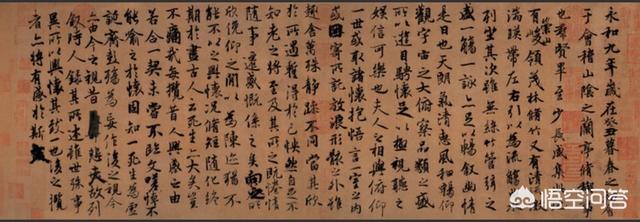 永和九年歲在癸丑暮春之初會
于會稽山陰之蘭亭脩稧事
也羣賢畢至少長咸集此地
有崇山峻領茂林脩竹又有清流激
湍暎帶左右引以為流觴曲水
列坐其次雖無絲竹管弦之
盛一觴一詠亦足以暢叙幽情
是日也天朗氣清惠風和暢仰
觀宇宙之大俯察品類之盛
所以遊目騁懷足以極視聽之
娛信可樂也夫人之相與俯仰
一世或取諸懷抱悟言一室之內
或因寄所託放浪形骸之外雖
趣舍萬殊靜躁不同當其欣
於所遇蹔得於己怏然自足不
知老之將至及其所之既惓情
隨事遷感慨係之矣向之所
欣俛仰之閒以為陳迹猶不
能不以之興懷況脩短隨化終
期於盡古人云死生亦大矣豈
不痛哉每攬昔人興感之由
若合一契未嘗不臨文嗟悼不
能喻之於懷固知一死生為虛
誕齊彭殤為妄作後之視今
亦由今之視昔悲夫故列
叙時人錄其所述雖世殊事
異所以興懷其致一也後之攬
者亦將有感於斯文
悟空问答